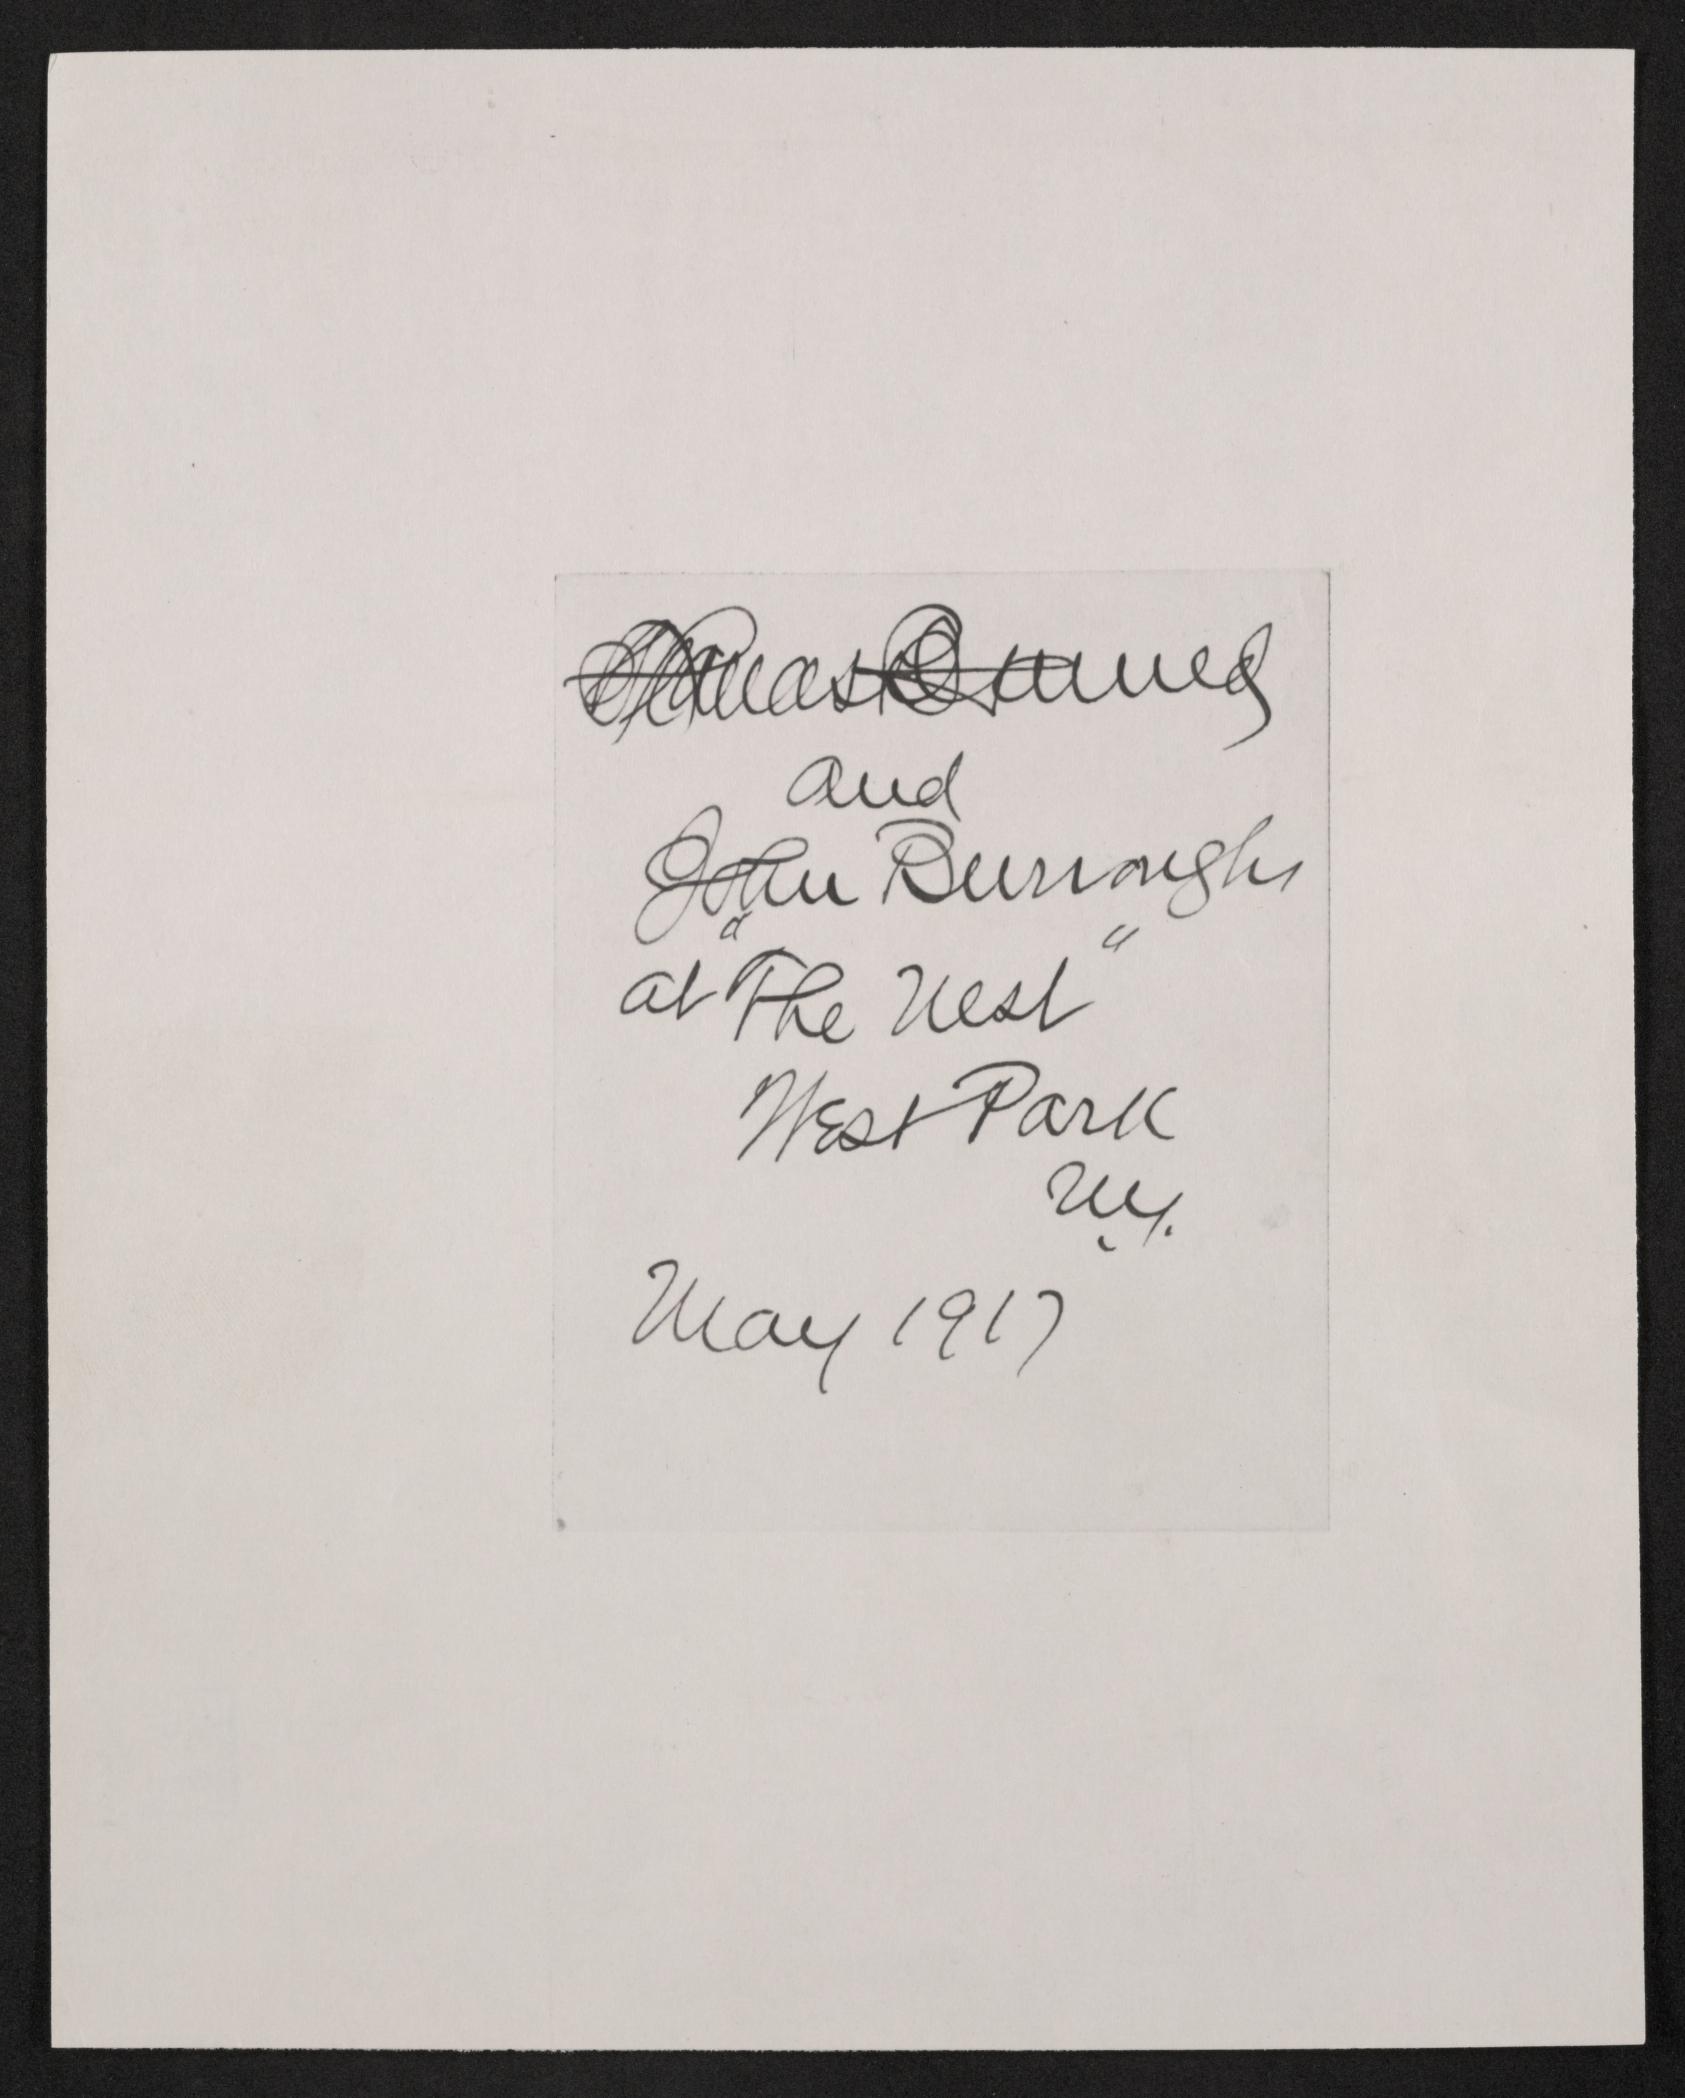 and
John Burroughs
at "The Nest"
West Park
N.Y.
May 1917